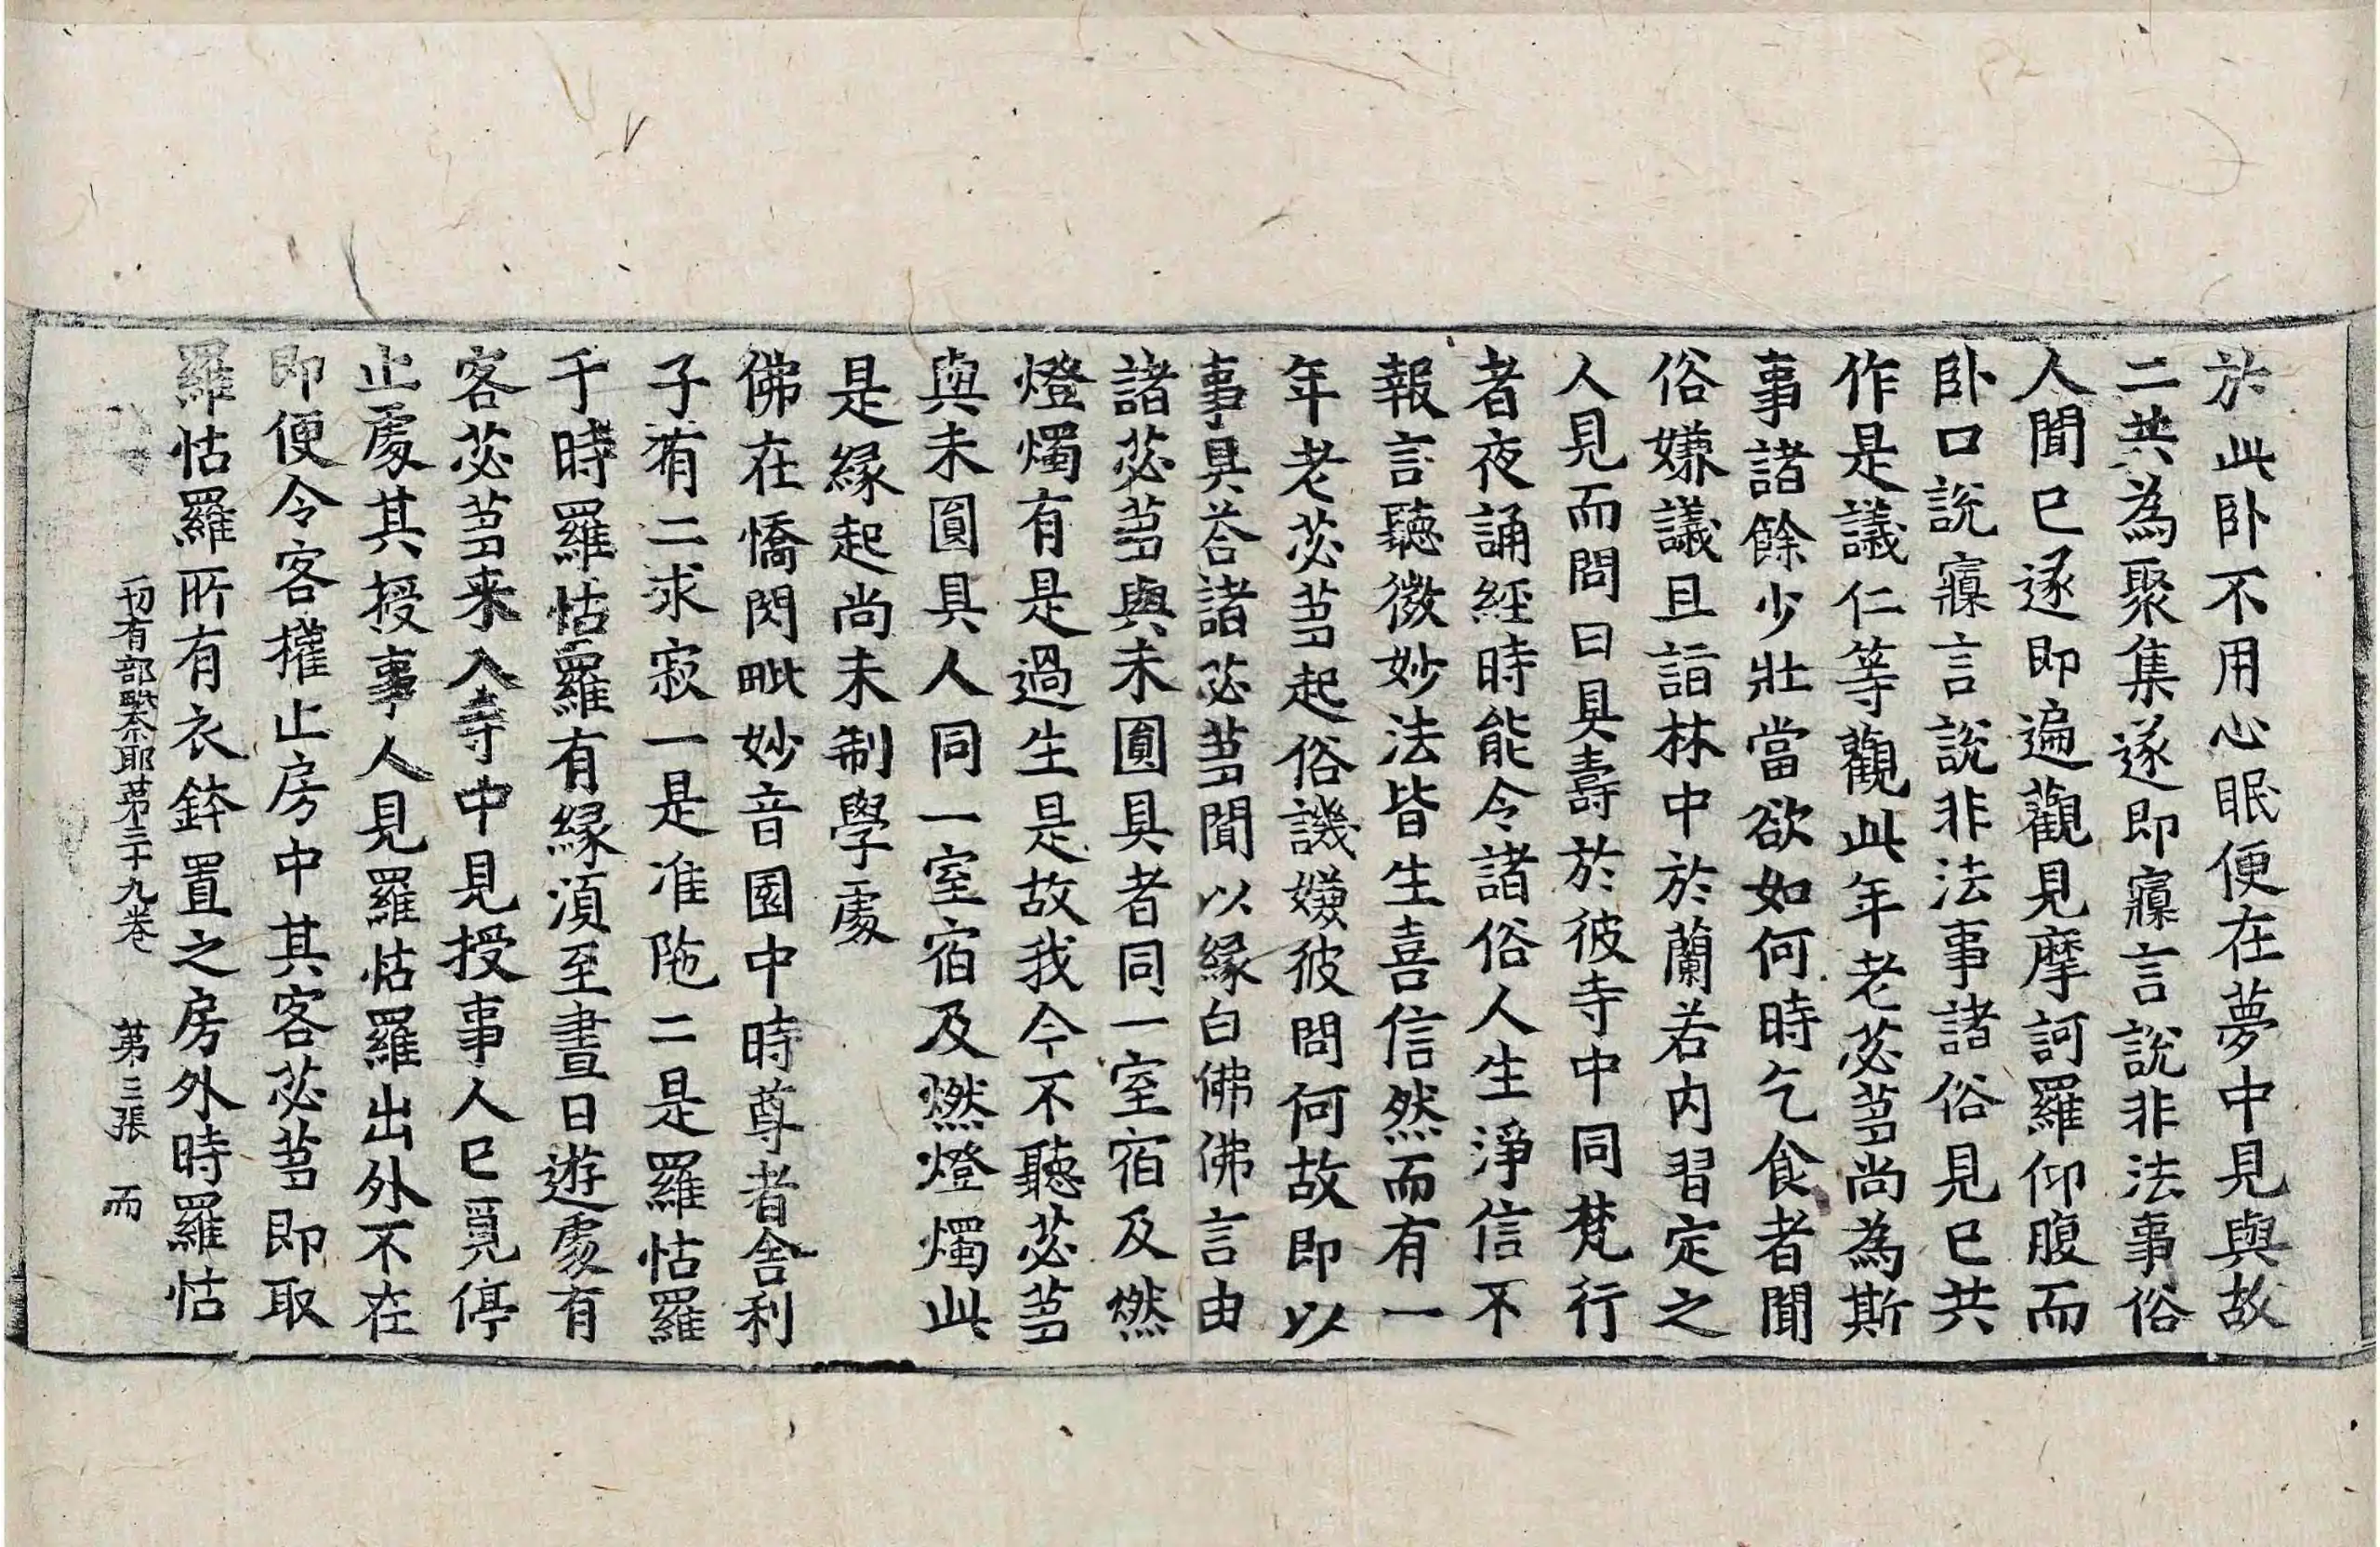 於此卧不用心眠便在夢中見與故
二共為聚集遂即寱言說非法事俗
人聞已遂即遍觀見摩訶羅仰腹而
卧口說寱言說非法事諸俗見已共
作是議仁等觀此年老苾蒭尚為斯
事諸餘少壯當欲如何時乞食者聞
俗嫌議且詣林中於蘭若內習定之
人見而問曰具壽於彼寺中同梵行
者夜誦經時能令諸俗人生淨信不
報言聽微妙法皆生喜信然而有一
年老苾蒭起俗譏嫌彼問何故即以
事具荅諸苾蒭聞以緣白佛佛言由
諸苾蒭與未圓具者同一室宿及燃
燈燭有是過生是故我今不聽苾蒭
與未圓具人同一室宿及燃燈燭此
是緣起尚未制學處
佛在憍閃毗妙音園中時尊者舍利
子有二求寂一是准陁二是羅怙羅
于時羅怙羅有緣須至晝日遊處有
客苾蒭来入寺中見授事人已覓停
止處其授事人見羅怙羅出外不在
即便令客權止房中其客苾蒭即取
羅怙羅所有衣鉢置之房外時羅怙
切有部毗奈耶苐三十九卷　苐三張　而